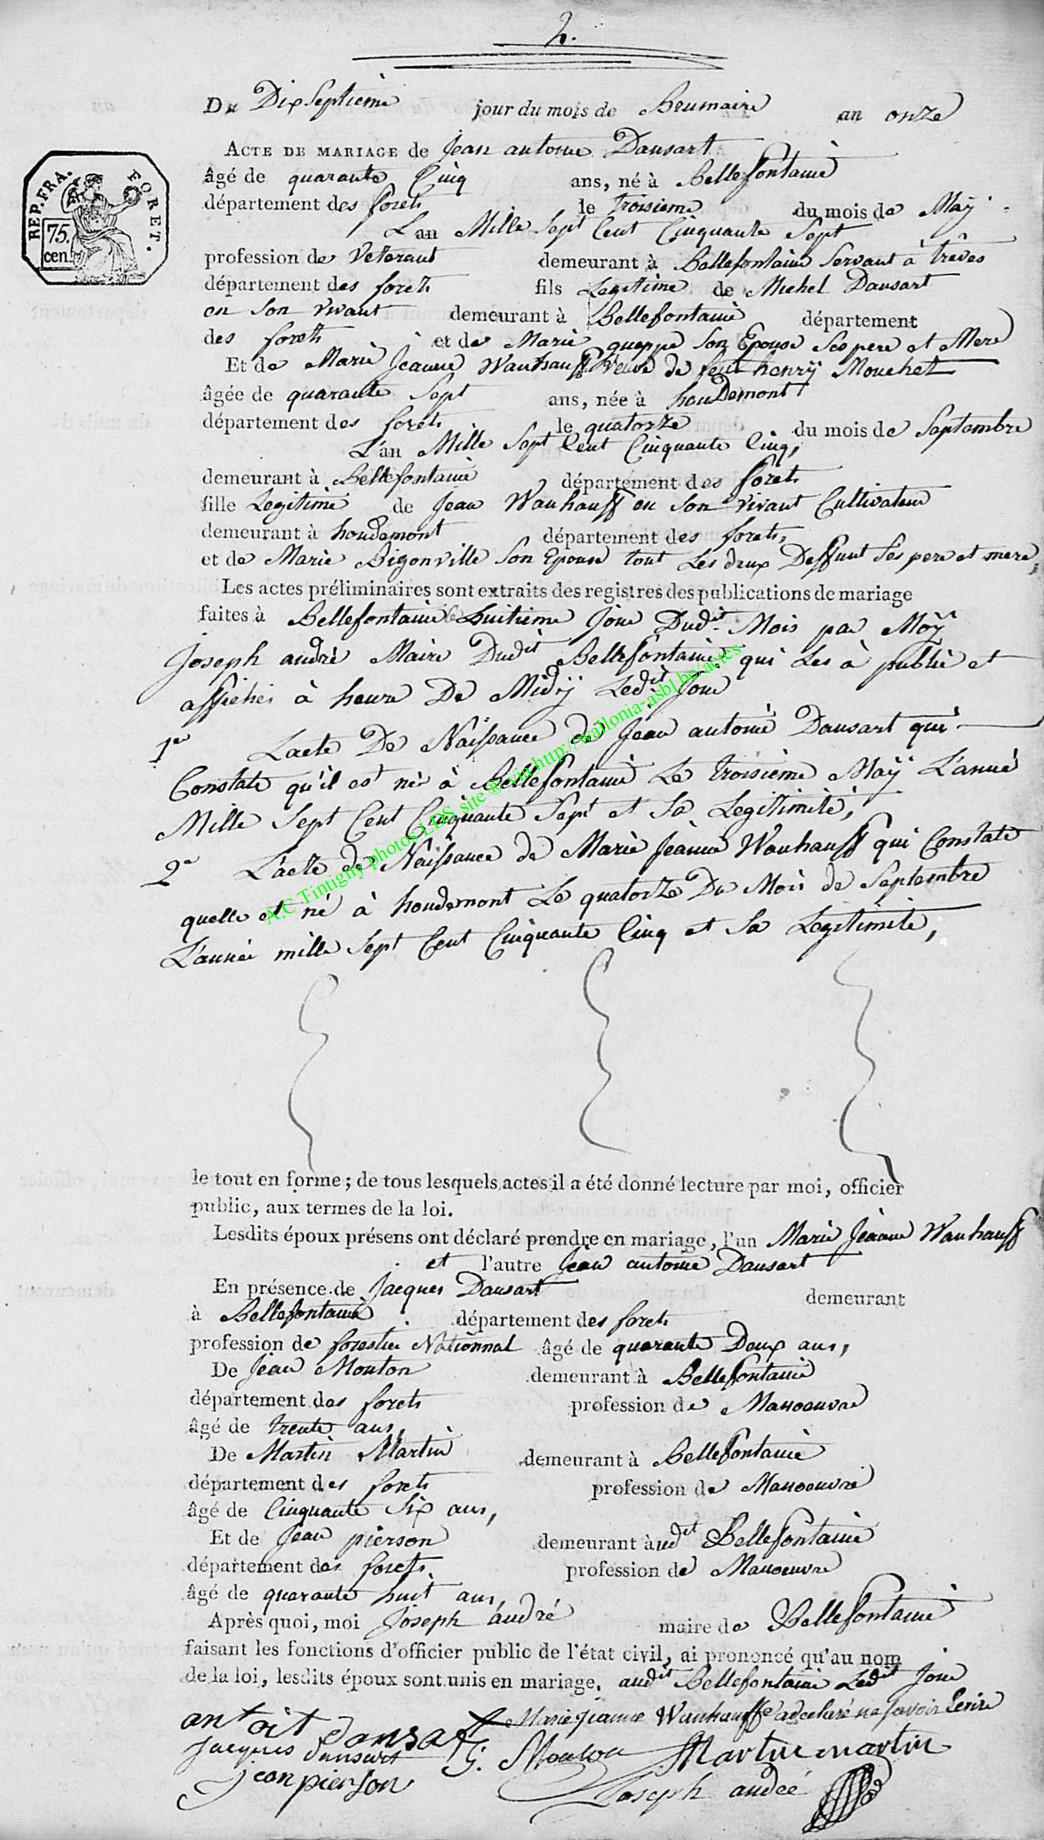 2.
Du Dix Septieme jour du mois de Brumaire an onze
ACTE DE MARIAGE de Jean antoine Dansart
âgé de quarante Cinq ans, né à Bellefontaine
département des forets le troisieme du mois de Maÿ
L'an Mille Sept Cent Cinquante Sept
REP. FRA. FORET.
75. cen.
profession de Veterant demeurant à Bellefontaine Servant à trêves
département des forets fils Legitime de Michel Dansart
en Son vivant demeurant à Bellefontaine département
des forets et de Marie queppe Son Epouse Ses pere et Mere
Et de Marie Jeanne Wanhauff veuve de feut henrÿ Mouchet
âgée de quarante Sept ans, née à houDemont
département des forets le quatorze du mois de Septembre
L'an Mille Sept Cent Cinquante Cinq,
demeurant à Bellefontaine département des forets
fille Legitime de Jean Wanhauff en Son vivant Cultivateur
demeurant à houdemont département des forets,
et de Marie Bigonville Son Epouse tout Les deux Deffunt Ses pere et mere,
Les actes préliminaires sont extraits des registres des publications de mariage
faites à Bellefontaine Le huitieme Jour Dudit Mois par Moÿ
Joseph andré Maire Dudit Bellefontaine qui Les à publié et
affichés à heure De Midÿ Ledit Jour
1er Lacte De Naissance de Jean antoine Dansart qui
Constate qu'il est né à Bellefontaine Le troisième Maÿ L'anné
Mille Sept Cent Cinquante Sept et Sa Legitimité,
2e L'acte de Naissance de Marie Jeanne Wanhauff qui Constate
quelle et né à houdemont Le quatorze Du Mois de Septembre
L'année mille Sept Cent Cinquante Cinq et Sa Legitimité,
A.C Tintigny photos LDS site @ via http://wallonia-asbl.be/actes
le tout en forme ; de tous lesquels actes il a été donné lecture par moi, officier
public, aux termes de la loi.
Lesdits époux présens ont déclaré prendre en mariage, l'un Marie Jeanne Wanhauff
et l'autre Jean antoine Dansart
En présence de Jacques Dansart demeurant
à Bellefontaine département des forets
profession de forestier Nationnal âgé de quarante Deux ans,
De Jean Mouton demeurant à Bellefontaine
département des forets profession de Manoeuvre
âgé de trente ans,
De Martin Martin demeurant à Bellefontaine
département des forets profession de Manoeuvre
âgé de Cinquante Six ans,
Et de Jean pierson demeurant à udit Bellefontaine
département des forets profession de Manoeuvre
âgé de quarante huit ans,
Après quoi, moi Joseph andré maire de Bellefontaine
faisant les fonctions d'officier public de l'état civil, ai prononcé qu'au nom
de la loi, lesdits époux sont unis en mariage, audit Bellefontaine Ledit Jour
antoit dansart Marie Jeanne Wanhauff a declaré ne savoir Ecrire
Jacques dansart G. Mouton Martin martin
Jean pierson Joseph andré